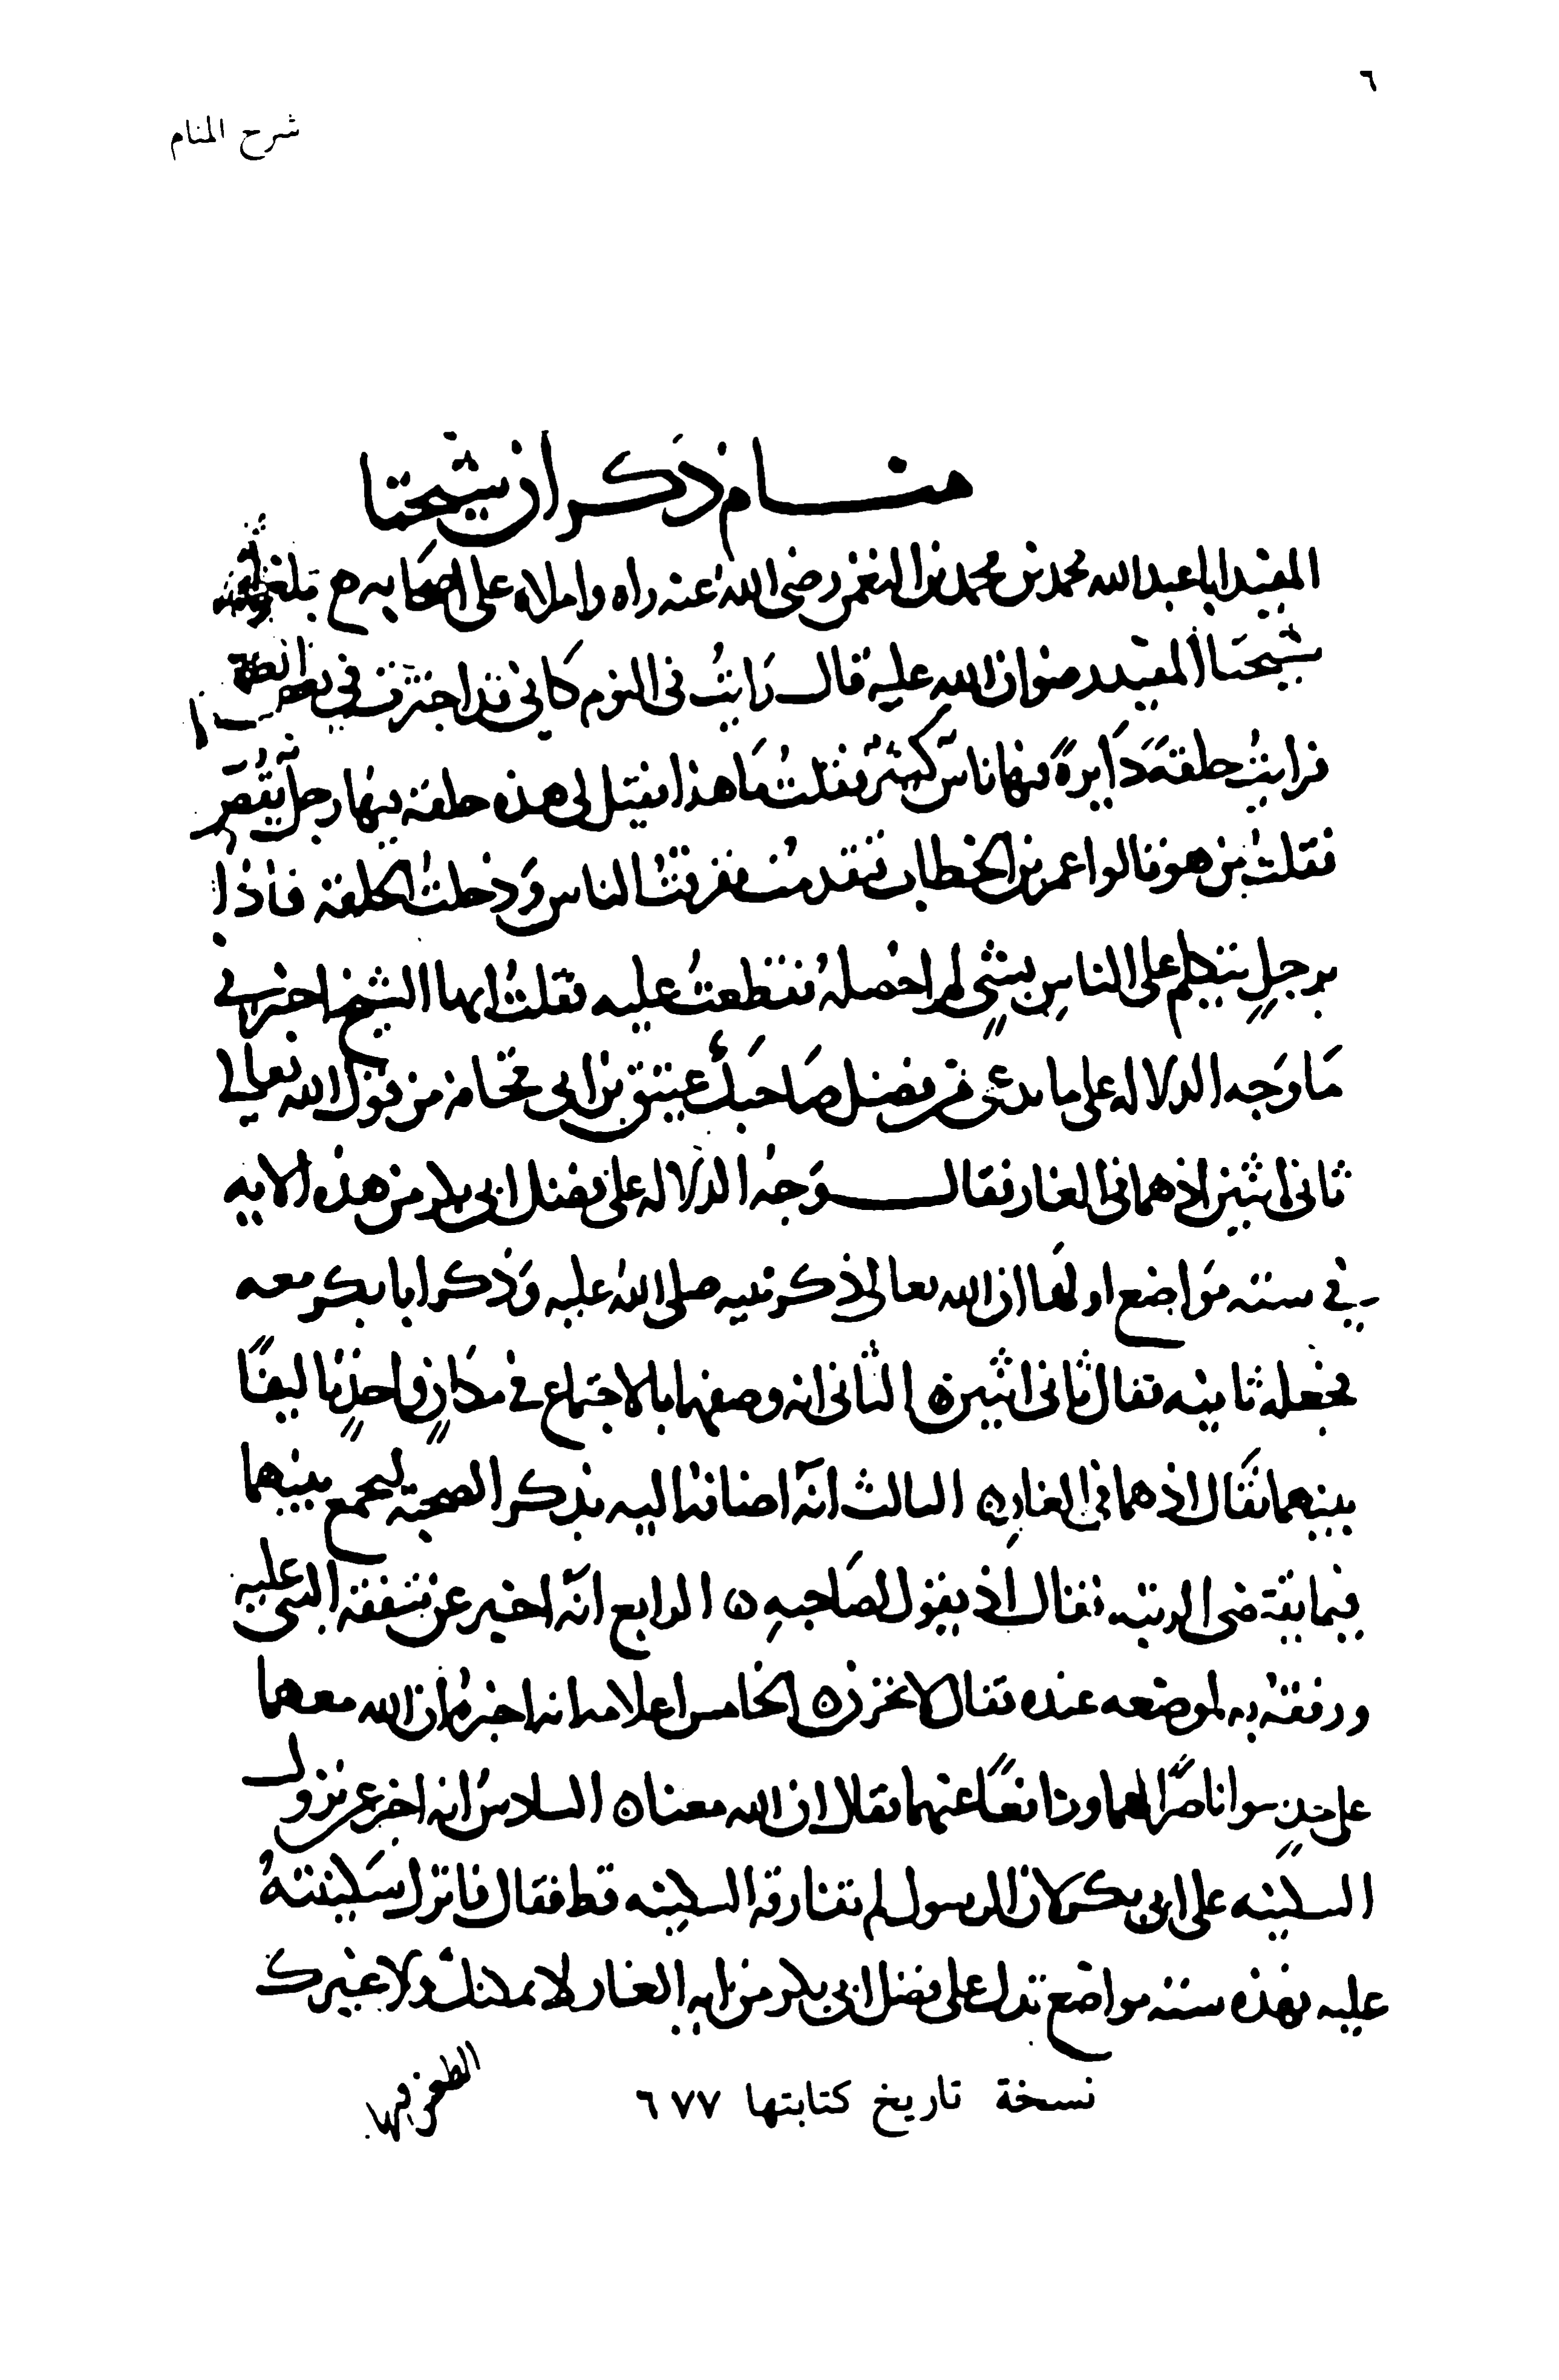 ٦
شرح المنام
منام ذكر ان شيخنا
المفيد ابا عبدالله محمد بن محمد بن النعمن رضى الله عنه راه واملاه على اصحابه بلغنا
شيخنا المفيد رضوان الله عليه قال رايت فى النوم كانى قد اجتزت فى بعض
فرايت حلقة دايرة فيها ناس كثير فقلت ما هذا فقيل لى هذه حلقة فيها رجل يقص
فقلت من هو قالوا عمر بن الخطاب فتقدمت ففرقت الناس ودخلت الحلقة فاذا
برجل يتكلم على الناس بشئ لم احصله فقطعت عليه فقلت ايها الشيخ اخبرنى
ما وجه الدلاله على ما يدعى من فضل صاحبك عتيق بن ابى قحافه من قول الله تعالى
ثانى اثنين اذ هما فى الغار فقال وجه الدلاله على فضل ابى بكر من هذه الايه
فى سته مواضع اولها ان الله تعالى ذكر نبيه صلى الله عليه وذكر ابا بكر معه
فجعله ثانيه فقال ثانى اثنين ه الثانى انه وصفهما بالاجتماع فى مكان واحد تاليفا
بينهما فقال اذ هما فى الغار ه الثالث انه اضافه اليه بذكر الصحبة ليجمع بينهما
فيما يقتضى الرتبه فقال اذ يقول لصاحبه ه الرابع انه اخبر عن شفقة النبى عليه
ورفقه به لموضعه عنده فقال لا تحزن ه الخامس اعلامه انه اخبره ان الله معهما
على حد سوا ناصرا لهما ودافعا عنهما فقال ان الله معنا ه السادس انه اخبر عن نزول
السكينه على ابى بكر لان الرسول لم تفارقه السكينه قط فقال فانزل سكينته
عليه فهذه سته مواضع تدل على فضل ابى بكر من ايه الغار لا يمكنك ولا غيرك
الطعن فيها
نسخة تاريخ كتابتها ٦٧٧